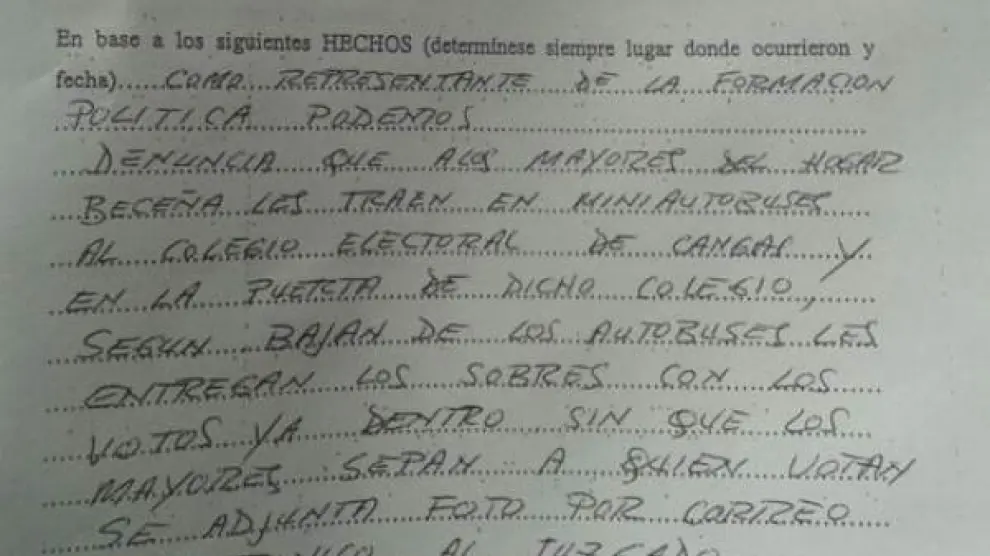 En base a los siguientes HECHOS (determínese siempre lugar donde ocurrieron y
fecha).....COMO REPRESENTANTE DE LA FORMACION
POLITICA PODEMOS
DENUNCIA QUE A LOS MAYORES DEL HOGAR
BECEÑA LES TRAEN EN MINIAUTOBUSES
AL COLEGIO ELECTORAL DE CANGAS Y
EN LA PUERTA DE DICHO COLEGIO,
SEGUN BAJAN DE LOS AUTOBUSES LES
ENTREGAN LOS SOBRES CON LOS
VOTOS YA DENTRO SIN QUE LOS
MAYORES SEPAN A QUIEN VOTAN
SE ADJUNTA FOTO POR CORREO
AL JUZGADO